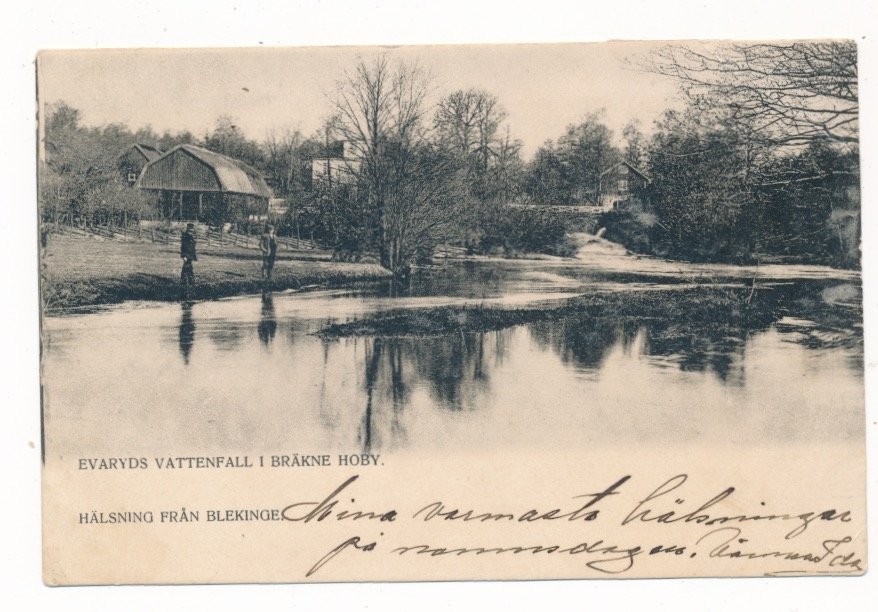 EVARYDS VATTENFALL I BRÄKNE HOBY.
HÄLSNING FRÅN BLEKINGE. Mina varmaste hälsningar
på namnsdagen. Ida